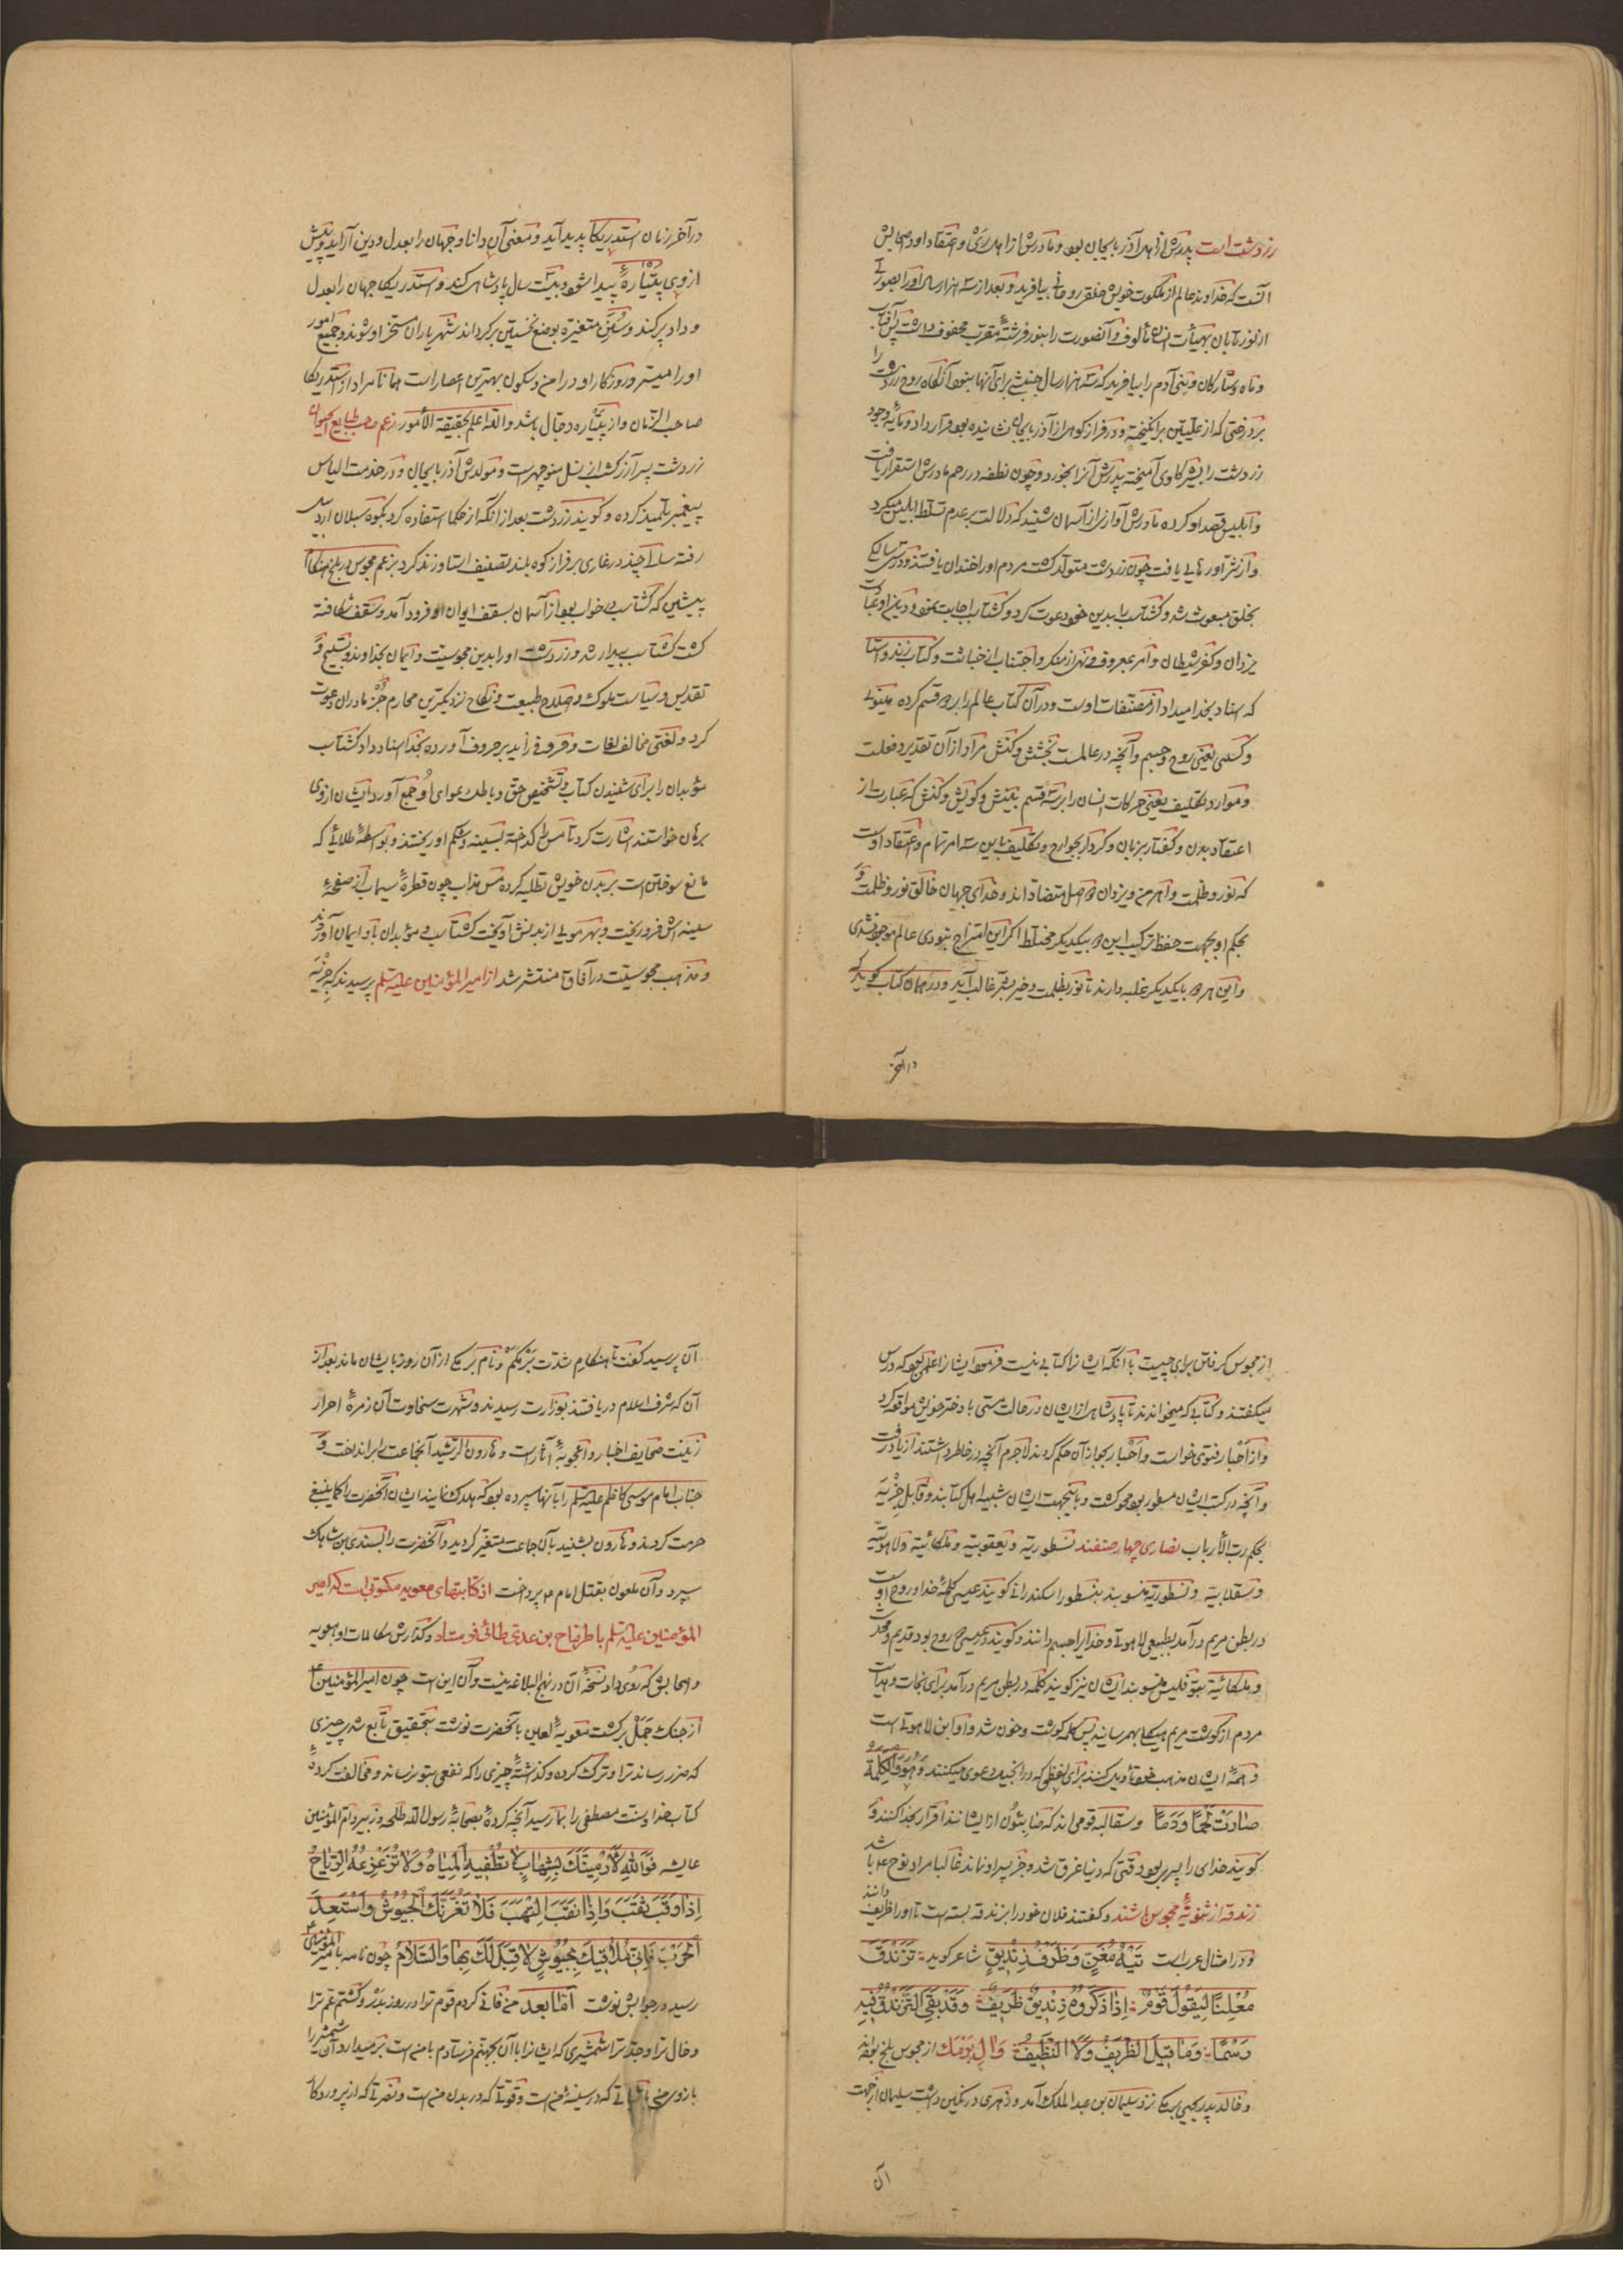 زردشت است پدرش از اهل آذربایجان بود و مادرش از اهل ری و اعتقاد او و صحابش
آنست که خداوند عالم از ملکوت خویش خلقی روحانی بیافرید و بعد از سه هزار سال او را بصورتی
از نور تابان بهیأت انسان تألوف و آنصورت را بنور فرشتهٔ مقرب محفوف داشت پس آفتاب
و ماه و ستارکان و بنی آدم را بیافرید که سه هزار سال جنبش برای آنها نبود آنگاه روح زردشت را
بر درختی که از علیین برانکیخته و در فراز کوهی از آذربایجان نشانیده بود قرار داد و مایهٔ وجود
زردشت را بشیر کاوی آمیخته پدرش آنرا بخورد و چون نطفه در رحم مادرش استقرار یافت
و ابلیس قصد او کرده مادرش آوازی از آسمان شنید که دلالت بر عدم تسلط ابلیس میکرد
و از شر او رهایی یافت چون زردشت متولد کشت مردم او را خندان یافتند و در سی سالگی
بخلق مبعوث شد و کشتاسب را بدین خود دعوت کرد و کشتاسب اجابت نمود و دین او عبادت
یزدان و کفر شیطان و امر بمعروف و نهی از منکر و اجتناب از خباثت و کتاب زند و استا
که اسناد بخدا میداد از مصنفات اوست و در آن کتاب عالم را بر دو قسم کرده مینوی
و کستی یعنی روح و جسم و آنچه در عالمست بخشش و کنش مراد از آن تقدیر و فعلست
و موارد تکلیف یعنی حرکات انسان را بر سه قسم منش و کویش و کنش که عبارت از
اعتقاد بدن و کفتار بزبان و کردار بجوارح و تکلیف باین سه امر تمام و اعتقاد اوست
که نور و ظلمت و اهرمن و یزدان دو اصل متضاد اند و خدای جهان خالق نور و ظلمت و
بحکم او بجهت حفظ ترکیب این دو بیکدیکر مختلط اکر این امتزاج نبودی عالم موجود نشدی
و این هر دو با یکدیکر غلبه دارند تا نور بظلمت و خیر بشر غالب آید و در همان کتاب کوید که
در آخر
در آخر زمان استدریکا پدید آید و معنی آن دانا و جهان را بعدل و دین آراید و پیش
از وی پتیاره پیدا شود و بیست سال پادشاهی کند و استدریکا جهان را بعدل
و داد پر کند و سنن متغیره بوضع نخستین برکرداند شهریاران مسخر او شوند و جمیع امور
او را میسر و روزکار او در امن و سکون بهترین اعصار است همانا مراد از استدریکا
صاحب الزمان و از پتیاره دجال باشد والله اعلم بحقیقة الأمور زعم صاحب طبایع الحیوان
زردشت پسر آزرکشب از نسل منوچهر است و مولدش آذربایجان و در خدمت الیاس
پیغمبر تلمیذ کرده و کویند زردشت بعد از انکه از حکما استفاده کرد بکوه سبلان اردبیل
رفته سالی چند در غاری بر فراز کوه بلند تصنیف استا و زند کرد بزعم مجوس در بلخ هنکام
پیشین که کشتاسب در خواب بود از آسمان بسقف ایوان او فرود آمد و سقف شکافته
کشت کشتاسب بیدار شد و زردشت او را بدین مجوسیت و ایمان بخداوند و تسبیح و
تقدیس و سیاست ملوک و اصلاح طبیعت و نکاح نزدیکترین محارم جز مادران دعوت
کرد و لغتی مخالف لغات و حروف زاید بر حروف آورده بخدا اسناد داد کشتاسب
مؤبدان را برای شنیدن کتاب و تشخیص حق و باطل دعوای او جمع آورد ایشان از وی
برهان خواستند اشارت کرد تا مس را کداخته بسینه و شکم او ریختند و بواسطهٔ طلائی که
مانع سوختن است بر بدن خویش تطلیه کرده مس مذاب چون قطرهٔ سیماب از صفحهٔ
سینه اش فرو ریخت و بهر مویی از بدنش آویخت کشتاسب و مؤبدان باو ایمان آوردند
و مذهب مجوسیت در آفاق منتشر شد از امیرالمؤمنین علیه السلم پرسیدند که جزیه
از مجوس کرفتن برای چیست با آنکه ایشانرا کتابی نیست فرمود ایشانرا علمی بود که درس
میکفتند و کتابی که میخواندند تا پادشاهی از ایشان در حالت مستی با دختر خویش مواقعه کرد
و از احبار فتوی خواست و احبار بجواز آن حکم کردند لاجرم آنچه در خاطر داشتند از یاد رفت
و آنچه در کتب ایشان مسطور بود محو کشت و باینجهت ایشان شبیه اهل کتابند و قابل جزیه
بحکم رب الأرباب نصاری چهار صنفند نسطوریه و یعقوبیه و ملکائیه و لاهوتیه
و سقلابیه و نسطوریه منسوبند بنسطور اسکندرانی کویند عیسی کلمهٔ خدا و روح اوست
در بطن مریم درآمد بطبیعی لاهوتی و خدا را جسم دانند و کویند که مسیح روح بود قدیم و محدث
و ملکائیه بمرقلیس منسوبند ایشان نیز کویند کلمه در بطن مریم درآمد برای نجات و هدایت
مردم از کوشت مریم هیکلی بهم رسانید پس کلمه کوشت و خون شد و او ابن لاهوتی است
و همهٔ ایشان مذهب خود تأویل کنند برای لفظی که در انجیل دعوی میکنند و هو و الکلمة
صارت لحما و دما و سقالبه قومی اند که صابئون از ایشانند اقرار بخدا کنند و
کویند خدای را پسری بود وقتی که دنیا غرق شد و جز پسر او نماند غالبا مراد نوح ع باشد
زندقه از ثنویهٔ مجوس باشند و کفتند فلان خود را بزندقه بسته است تا او را ظریف دانند
و در امثال عربست تیه مغن و ظرف زندیق شاعر کوید تزندق
معلنا لیقول قوم اذا ذکروه زندیق ظریف و قد بقی التزندق فیه
وسما وما قیل الظریف ولا النظیف و آل برمک از مجوس بلخ بوده اند
و خالد پدر یحیی برمکی نزد سلیمان بن عبدالملک آمد و زهری در نکین داشت سلیمان از جهت
آن
آن پرسید کفت تا هنکام شدت برمکم و نام برمکی از آن روز بایشان ماند بعد از
آن که شرف اسلام دریافتند بوزارت رسیدند و شهرت سخاوت آن زمرهٔ احرار
زینت صحایف اخبار و اعجوبهٔ آثار است و هارون الرشید آنجماعت را برانداخت و
جناب امام موسی کاظم علیه السلم را بآنها سپرده بود که هلاک نمایند ایشان آنحضرت را کما ینبغی
حرمت کردند و هارون بشنید بآن جماعت متغیر کردید و آنحضرت را بسندی بن شاهک
سپرد و آن ملعون بقتل امام ع پرداخت از کتابتهای معویه مکتوبی است که امیر
المؤمنین علیه السلم با طرماح بن عدی طائی فرستاد و کذارش مکالمات او بمعویه
و اصحابش که روی داد نسخهٔ آن در نهج البلاغه نیست و آن اینست چون امیرالمؤمنین ع
از جنک جمل برکشت معویهٔ لعین بآنحضرت نوشت بتحقیق تابع شدی چیزی
که ضرر رساند ترا و ترک کرده و کذاشتهٔ چیزی را که نفعی بتو رساند و مخالفت کردهٔ
کتاب خدا و سنت مصطفی را بما رسید آنچه کردهٔ بصحابهٔ رسول الله طلحه و زبیر و ام المؤمنین
عایشه فوالله لارمینک بشهاب لا تطفیه المیاه ولا تزعزعه الریاح
اذا وقب ثقب و اذا نقب التهب فلا تغرنک الجیوش واستعد
الحرب فانی ملاقیک بجیوش لا قبل لک بها والسلام چون نامه بامیر المؤمنین ع
رسید در جوابش نوشت اما بعد من فانی کردم قوم ترا در روز بدر و کشتم عم ترا
و خال ترا و جد ترا شمشیری که ایشانرا با آن بجهنم فرستادم با من است برمیدارد آن شمشیر را
بازوی من با ثباتی که در سینهٔ من است و قوتی که در بدن من است و نصرتی که از پروردکار